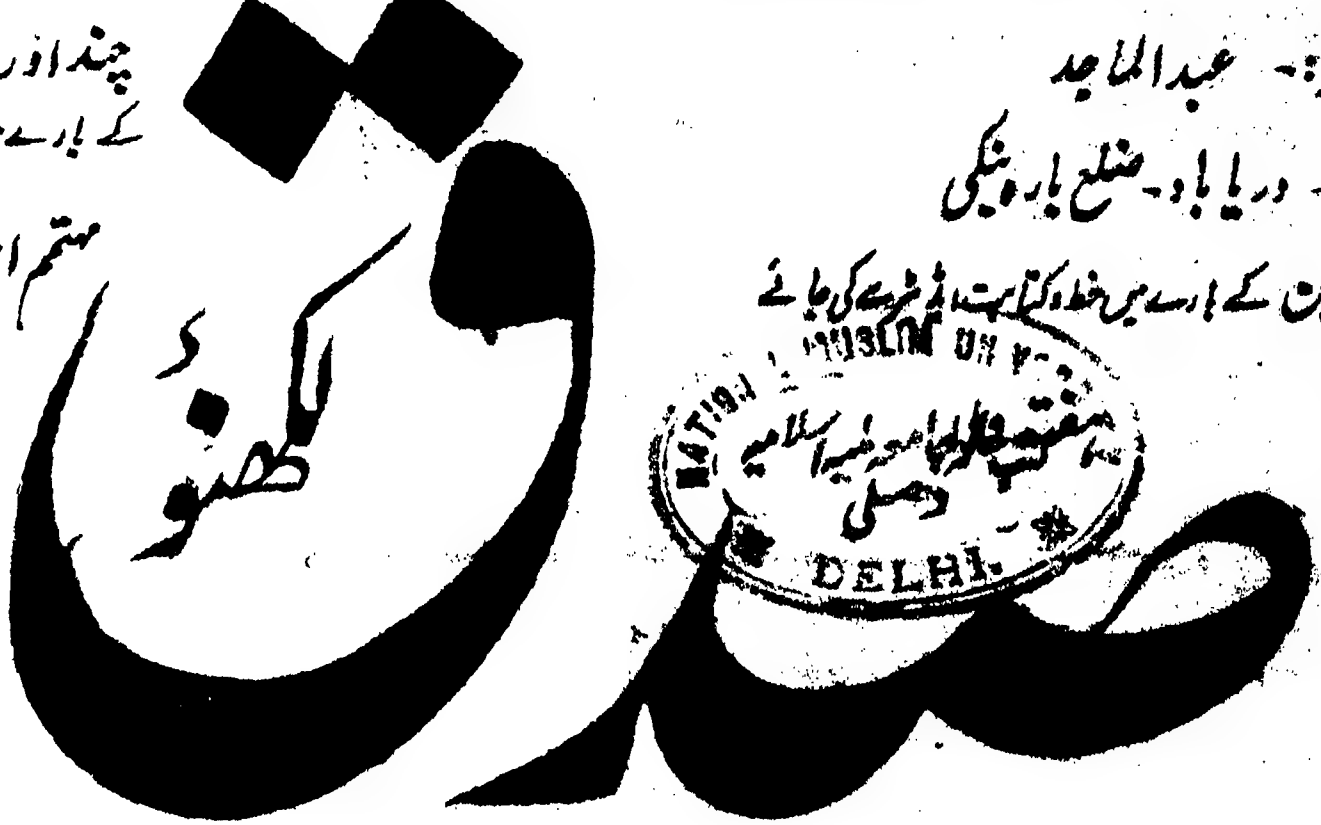 عبدالماجد
دریاباد۔ ضلع بارہ بنکی
کے بارے میں خط و کتابت اڈیٹر سے کی جائے
چندا اور
کے بارے
مہتمم
صدق
لکھنؤ
NATIONAL MUSLIM UN
جامعہ ملیہ اسلامیہ
دہلی
DELHI.